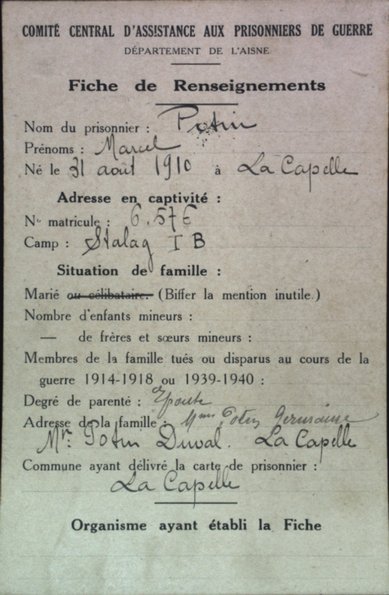 COMITÉ CENTRAL D'ASSISTANCE AUX PRISONNIERS DE GUERRE
DÉPARTEMENT DE L'AISNE
Fiche de Renseignements
Nom du prisonnier : Potin
Prénoms : Marcel
Né le 31 août 1910 à La Capelle
Adresse en captivité :
N° matricule : 6.576
Camp : Stalag I B
Situation de famille :
Marié ou célibataire. (Biffer la mention inutile.)
Nombre d'enfants mineurs :
— de frères et sœurs mineurs :
Membres de la famille tués ou disparus au cours de la
guerre 1914-1918 ou 1939-1940 :
Degré de parenté : Epouse
Adresse de la famille : Mme Potin Germaine
Potin Duval. La Capelle
Commune ayant délivré la carte de prisonnier :
La Capelle
Organisme ayant établi la Fiche